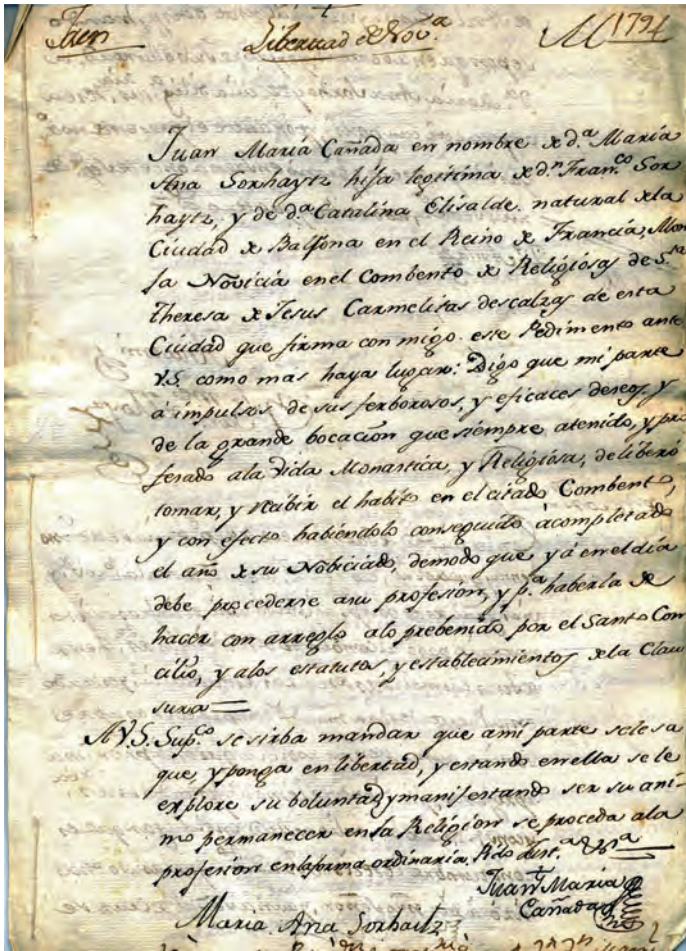 Jaen Libertad de Nov.ª M 1794
Juan Maria Cañada en nombre de d.ª Maria
Ana Sorhaytz hija legitima de d.ⁿ Fran.co Sor
haytz, y de d.ª Catalina Elisalde natural de la
Ciudad de Baiona en el Reino de Francia, Mon
ja Novicia en el Combento de Religiosas de S.ta
Theresa de Jesus Carmelitas descalzas de esta
Ciudad que firma con migo este Pedimento ante
V.S. como mas haya lugar: Digo que mi parte
à impulsos de sus ferborosos, y eficaces deseos, y
de la grande bocacion que siempre atenido, y pro
fesado ala Vida Monastica, y Religiosa, deliberó
tomar, y recibir el habito en el citado Combento,
y con efecto habiendolo conseguido à completado
el año de su Nobiciado, demodo que yá en el dia
debe procederse asu profesion, y p.ª haberla de
hacer con arreglo alo prebenido por el Santo Con
cilio, y alos estatutos, y establecimientos dela Clau
sura=
A V.S. Sup.co se sirba mandar que ami parte sele sa
que, y ponga en libertad, y estando en ella se le
explore su boluntad y manifestando ser su ani-
mo permanecer en la Religion se proceda ala
profesion en la forma ordinaria, Pido Just.ª
Juan Maria
Cañada
Maria Ana Sorhaitz